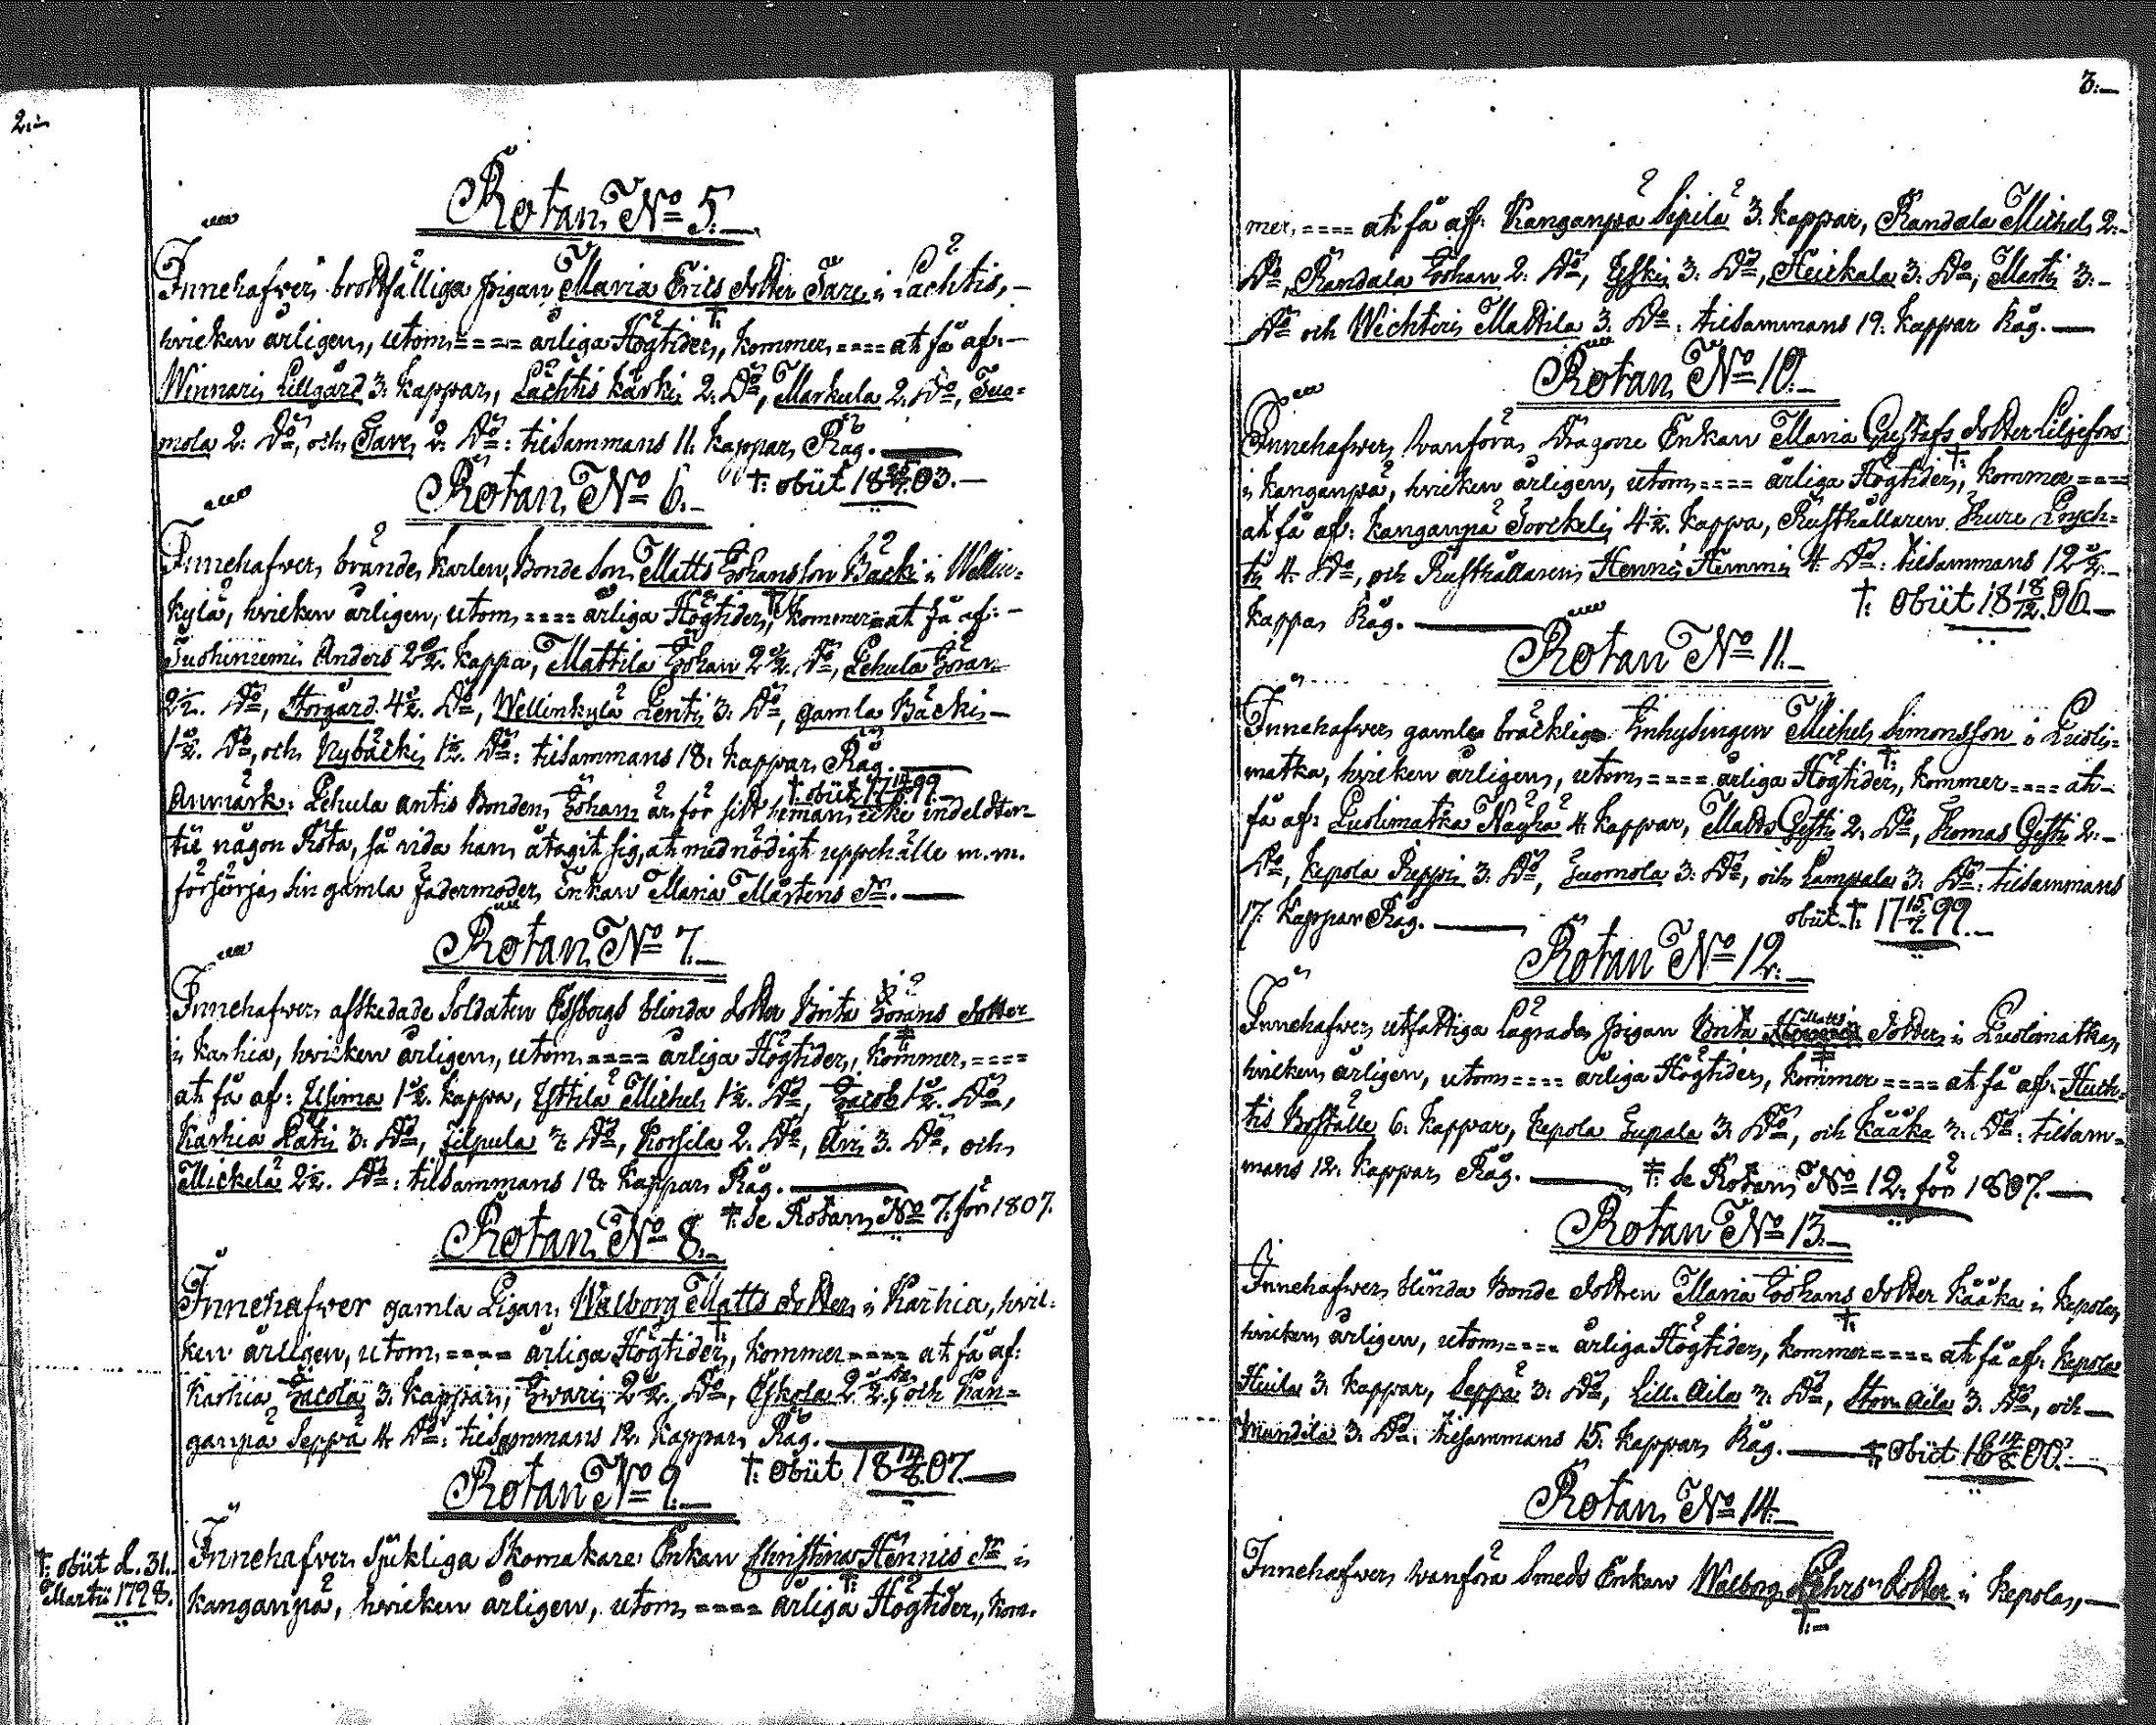 2.
Rotan N:o 5.
Innehafver brottfälliga pigan Maria Erics dotter Tare i Lachtis,
hvilken årligen, utom ==== årliga Högtider, †: kommer ==== at få af:
Winnari Lillgård 3. kappar, Lachtis kärki 2. D:o, Markula 2. D:o, Tuo=
mola 2. D:o, och Tare 2. D:o: tilsammans 11. kappar Råg.
†: obiit 18 03.
Rotan N:o 6.
Innehafver brände karlen, Bonde Son Matts Johansson Bäcki i Wellin=
kylä, hvilken årligen, utom ==== årliga Högtider, †: kommer = at få af:
Juoniemi Anders 2 1/2. kappa, Mattila Johan 2 1/2. D:o, Lehula Göran
2 1/2. D:o, Storgård 4 1/2. D:o, Wellinkylä Lenti 3. D:o, gamla Bäcki
1 1/2. D:o, och Nybäcki 1 1/2. D:o: tilsammans 18. kappar Råg.
†: obiit 17 99.
Anmärk: Lehula antis Bonden Johan är för sitt heman icke indeldter
til någon Rota, så vida han åtagit sig, at med nödigt uppehälle m.m.
försörja sin gamla fadermoder Enkan Maria Mårtens D:r.
Rotan N:o 7.
Innehafver afskedade Soldaten Essborgs blinda dotter Brita Görans dotter
i Karhia, hvilken årligen, utom ==== årliga Högtider, ‡: kommer ====
at få af: Uhima 1 1/2. kappa, Yttilä Michel 1 1/2. D:o, Jacob 1 1/2. D:o,
Karhia Lati 3. D:o, Filpula 3. D:o, Korsila 2. D:o, Ari 3. D:o, och
Mickelä 2 1/2. D:o: tilsammans 18. kappar Råg.
‡: Se Rotan N:o 7. för 1807.
Rotan N:o 8.
Innehafver gamla Pigan Walborg Matts dotter i Karhia, hvil=
ken årligen, utom ==== årliga Högtider, †: kommer ==== at få af:
Karhia Jacola 3. kappar, Iwari 2 1/2. D:o, Eskola 2 1/2. D:o, och Kan=
ganpä Seppä 4. D:o: tilsammans 12. kappar Råg.
†: obiit 18 07.
Rotan N:o 9.
†: obiit d. 31.
Martii 1798.
Innehafver sjukliga Skomakare Enkan Christina Hennis D:r i
Kanganpä, hvilken årligen, utom ==== årliga Högtider, †: kom=
3.
mer, ==== at få af: Kanganpä Sipilä 3. kappar, Randala Michel 2.
D:o, Randala Johan 2. D:o, Yski 3. D:o, Heickala 3. D:o, Martti 3.
D:o och Wechteri Mattila 3. D:o: tilsammans 19. kappar Råg.
Rotan N:o 10.
Innehafver vanföra Dragone Enkan Maria Gustafs dotter Liljefors
i Kanganpä, hvilken årligen, utom ==== årliga Högtider, †: kommer ====
at få af: Kanganpä Sorckeli 4 1/2. kappa, Rusthållaren Thure Lych=
ti 4. D:o, och Rusthållaren Henric Hemmi 4. D:o: tilsammans 12 1/2.
kappa Råg.
†: obiit 18 18/12. 06.
Rotan N:o 11.
Innehafver gamle bräcklige Inhysingen Michel Simonsson i Luolis=
matka, hvilken årligen, utom ==== årliga Högtider, †: kommer ==== at
få af: Luolimatka Näyhä 4. kappar, Matts Gesti 2. D:o, Thomas Gesti 2.
D:o, Kepola Reppi 3. D:o, Juomola 3. D:o, och Lampala 3. D:o: tilsammans
17. kappar Råg.
obiit †: 17 99.
Rotan N:o 12.
Innehafver utfattiga Lagrade pigan Brita Matts dotter i Luolimatka,
hvilken årligen, utom ==== årliga Högtider, ‡: kommer ==== at få af: Huch=
tis Boställe 6. kappar, Kepola Jupala 3. D:o, och Kååka 3. D:o: tilsam=
mans 12. kappar Råg.
‡: Se Rotan N:o 12. för 1807.
Rotan N:o 13.
Innehafver blinda Bonde dottren Maria Johans dotter Kååka i Kepola,
hvilken årligen, utom ==== årliga Högtider, †: kommer ==== at få af: Kepola
Huila 3. kappar, Seppä 3. D:o, Lill Aila 3. D:o, Stor Aila 3. D:o, och
Mundila 3. D:o: tilsammans 15. kappar Råg.
†: obiit 18 00.
Rotan N:o 14.
Innehafver vanföra Smeds Enkan Walborg Lehrs dotter i Kepola,
†: